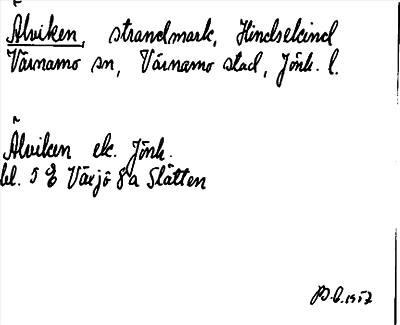 Ålviken, strandmark, Hindsekind
Värnamo sn, Värnamo stad, Jönk. l.
Ålviken ek. Jönk.
bl. 5 E Växjö 8a Slätten
1957